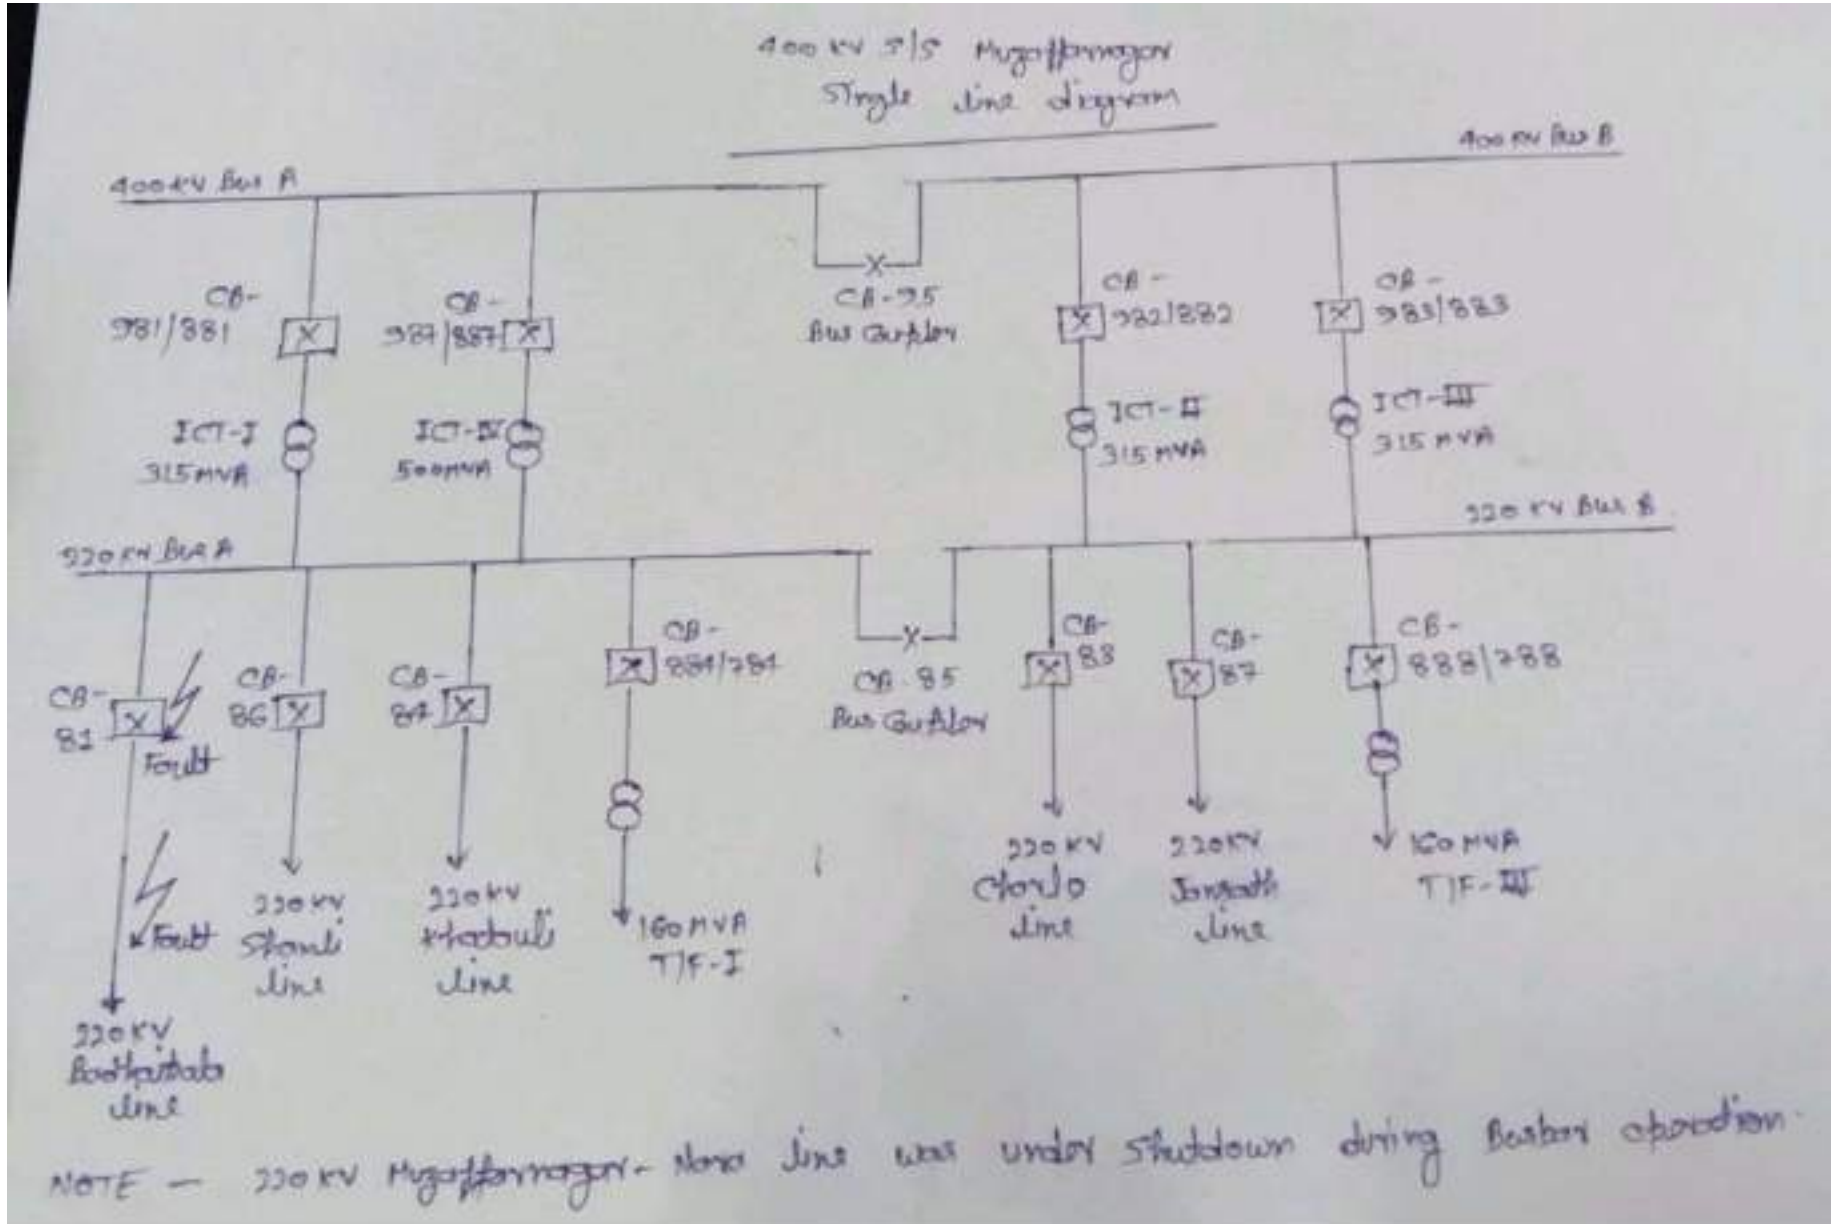 400 KV S/S Muzaffarnagar
Single line diagram
400 KV Bus A
400 KV Bus B
CB-
981/881
CB-
987/887
CB-95
Bus Coupler
CB-
982/882
CB-
983/883
ICT-I
315 MVA
ICT-IV
500 MVA
ICT-II
315 MVA
ICT-III
315 MVA
220 KV Bus A
220 KV Bus B
CB-
81
Fault
CB-
86
CB-
84
CB-
884/784
CB-85
Bus Coupler
CB-
83
CB-
87
CB-
888/788
Fault
220 KV
Shamli
line
220 KV
Khatauli
line
160 MVA
T/F-I
220 KV
line
220 KV
Jansath
line
160 MVA
T/F-III
220 KV
line
NOTE - 220 KV Muzaffarnagar - Nara line was under shutdown during Busbar operation.